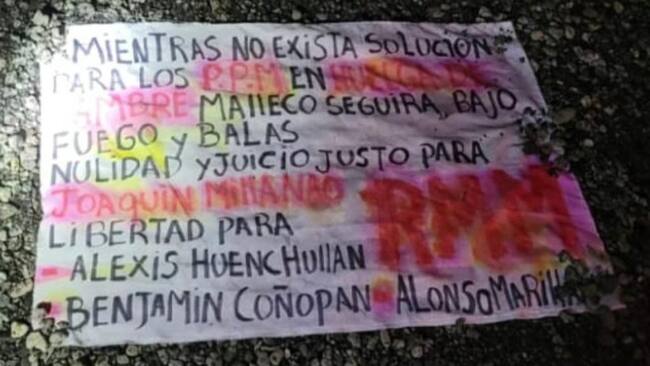 MIENTRAS NO EXISTA SOLUCIÓN
PARA LOS P.P.M EN HUELGA DE
HAMBRE MALLECO SEGUIRA, BAJO
FUEGO y BALAS
NULIDAD y JUICIO JUSTO PARA
JOAQUIN MILLANAO
LIBERTAD PARA
RMM
- ALEXIS HUENCHULLAN
- BENJAMIN COÑOPAN - ALONSO